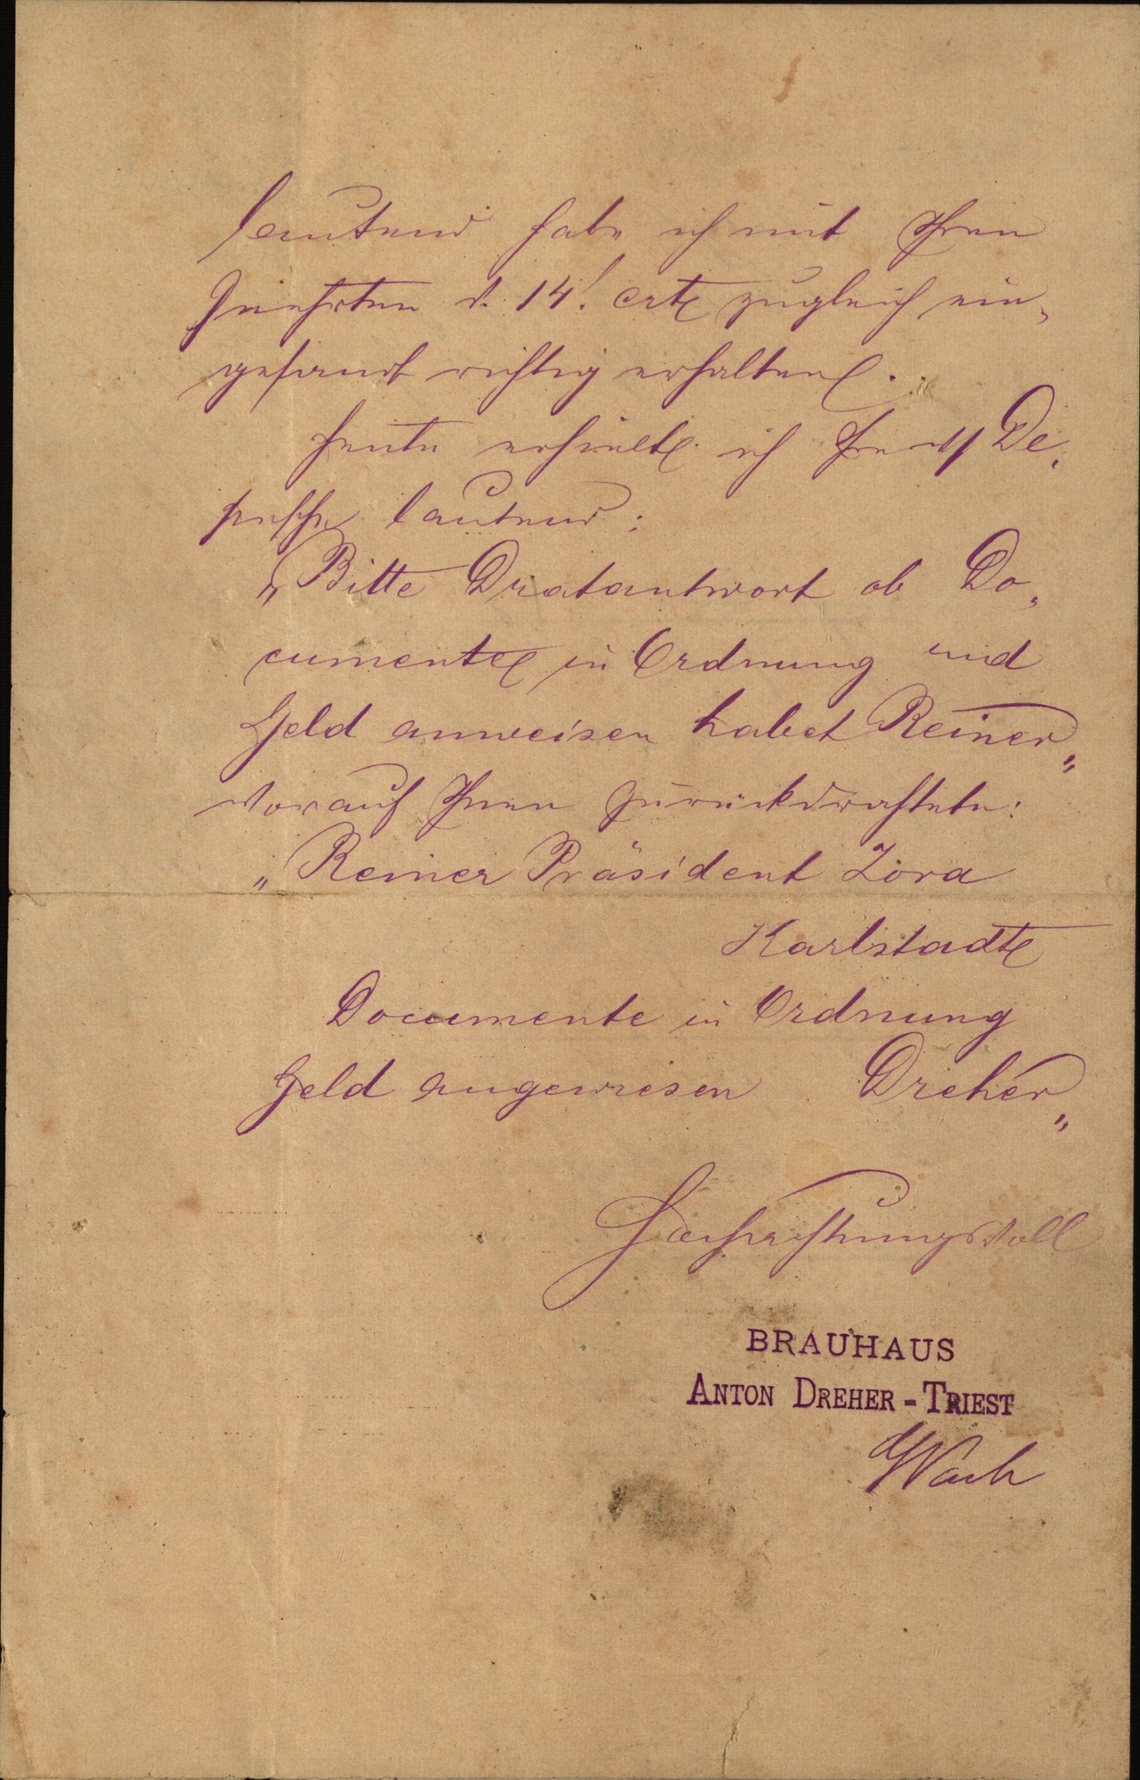 lautend habe ich mit Ihrem
Geehrten v. 14! crt zugleich ein„
gesandt richtig erhalten.
Heute erhielt ich Ihre De„
pesche lautend:
„Bitte Dratantwort ob Do„
cumente in Ordnung und
Geld anweisen habet Reiner„
worauf Ihnen zurückdrahtete:
„Reiner Präsident Zora
Karlstadt
Documente in Ordnung
Geld angewiesen Dreher„
Hochachtungsvoll
BRAUHAUS
ANTON DREHER - TRIEST